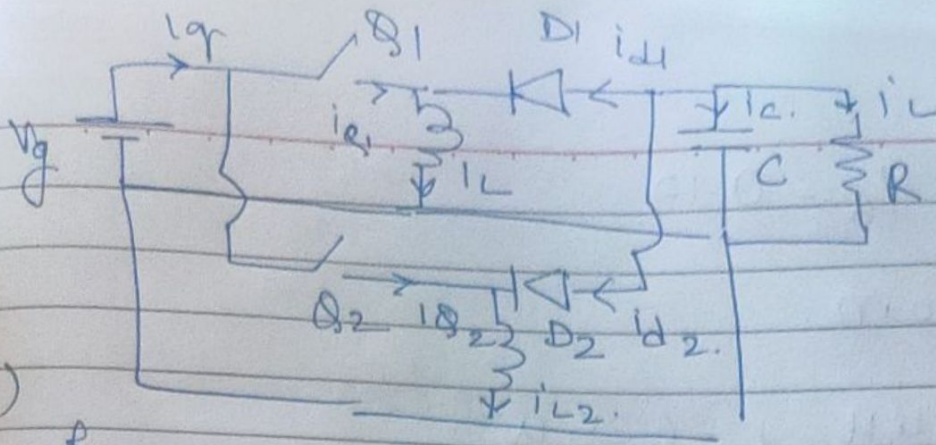 ig Q1 D1 id1
Vg iQ1 iL ic. C iL R
Q2 iQ2 D2 id2.
) iL2.